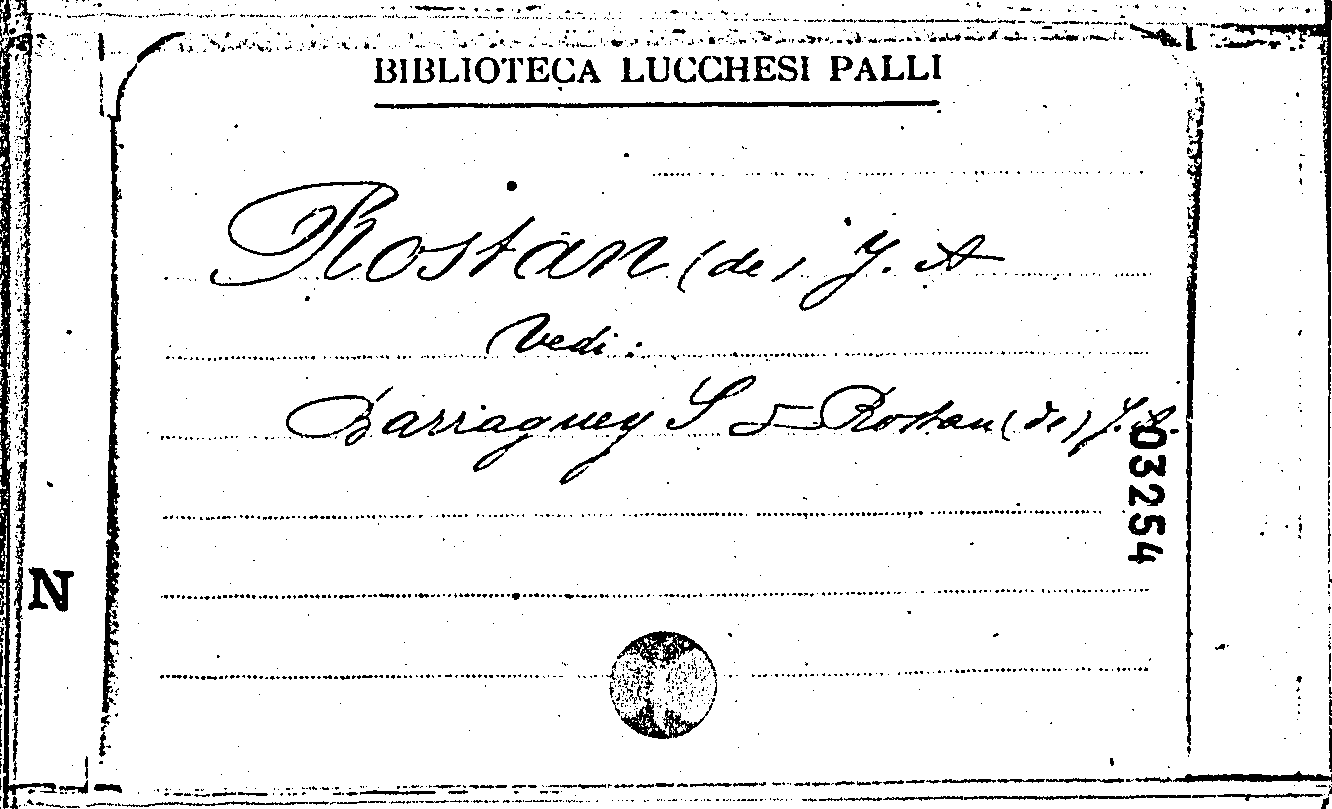 BIBLIOTECA LUCCHESI PALLI
Rostan (de) J. A
Vedi:
Barraguey S & Rostan (de) J. A.
03254
N